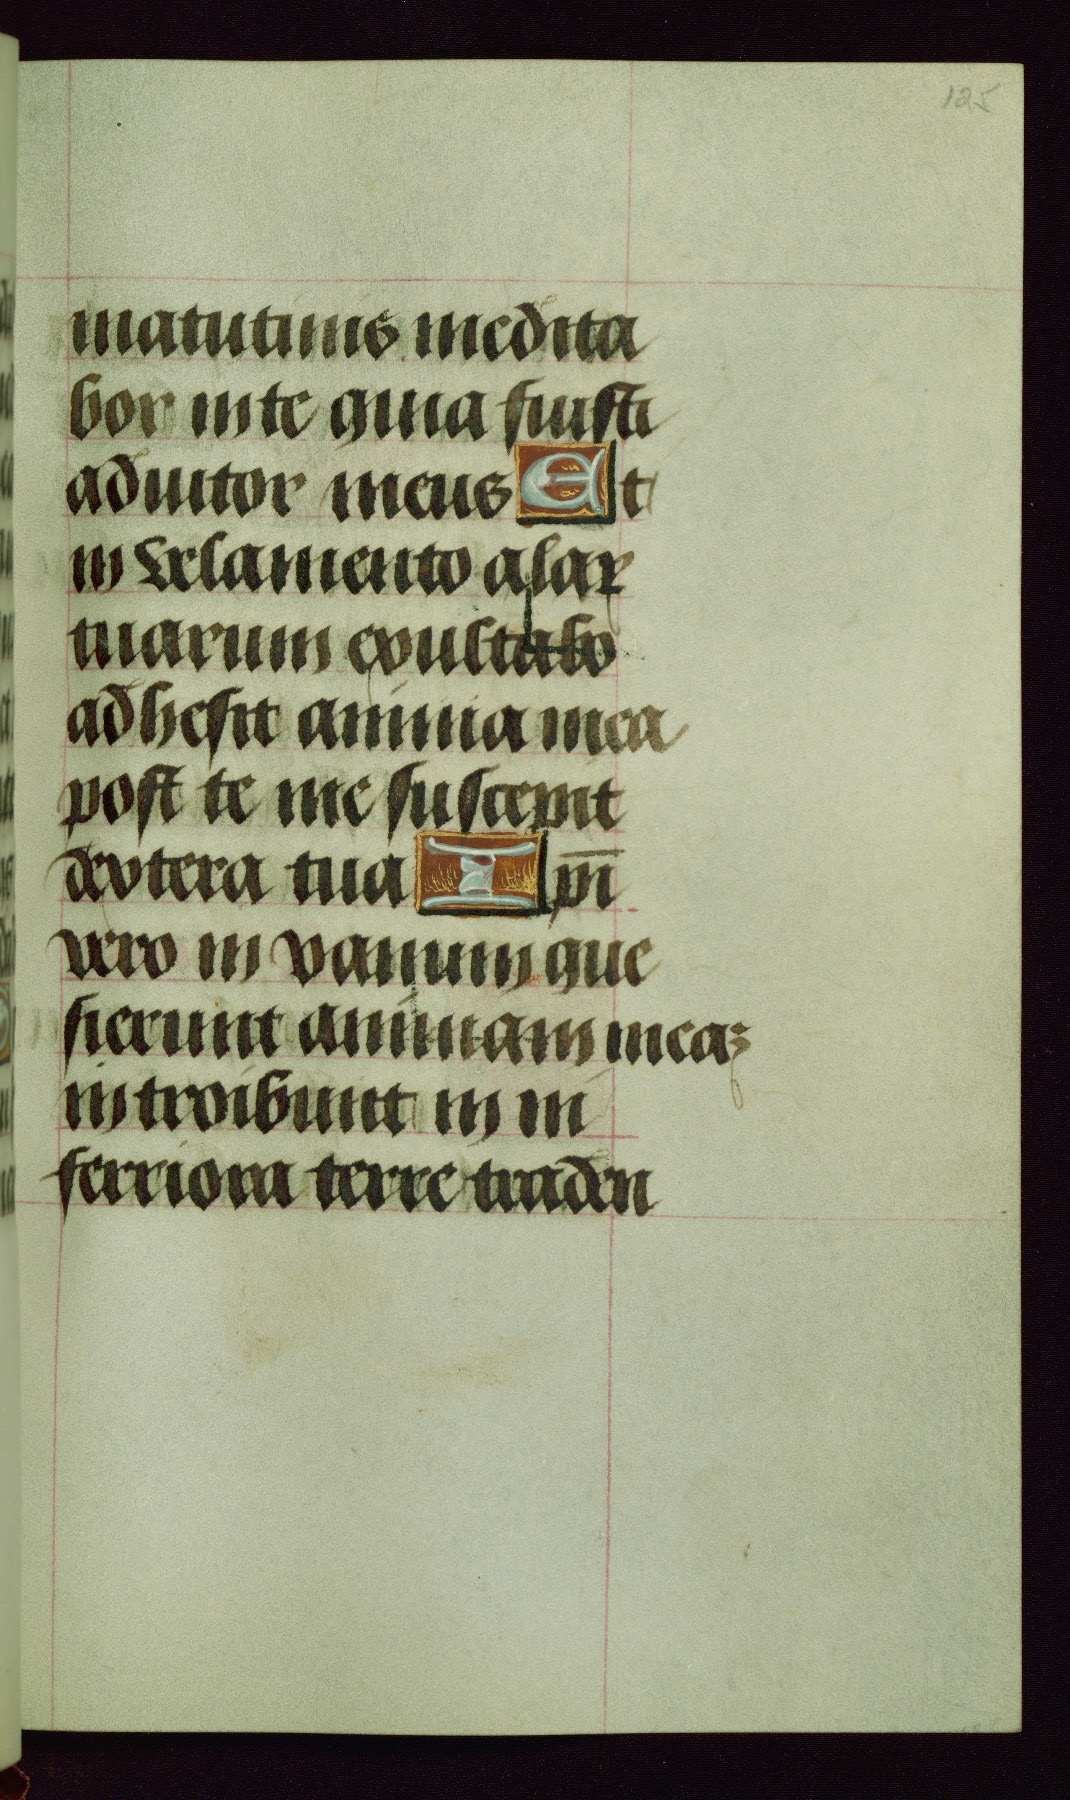 125
matutinis medita
bor in te quia fuisti
adiutor meus Et
in velamento alar
tuarum exultabo
adhesit anima mea
post te me suscepit
dextera tua Ip̄i
vero in vanum que
sierunt animam meaʒ
introibunt in in
ferriora terre traden